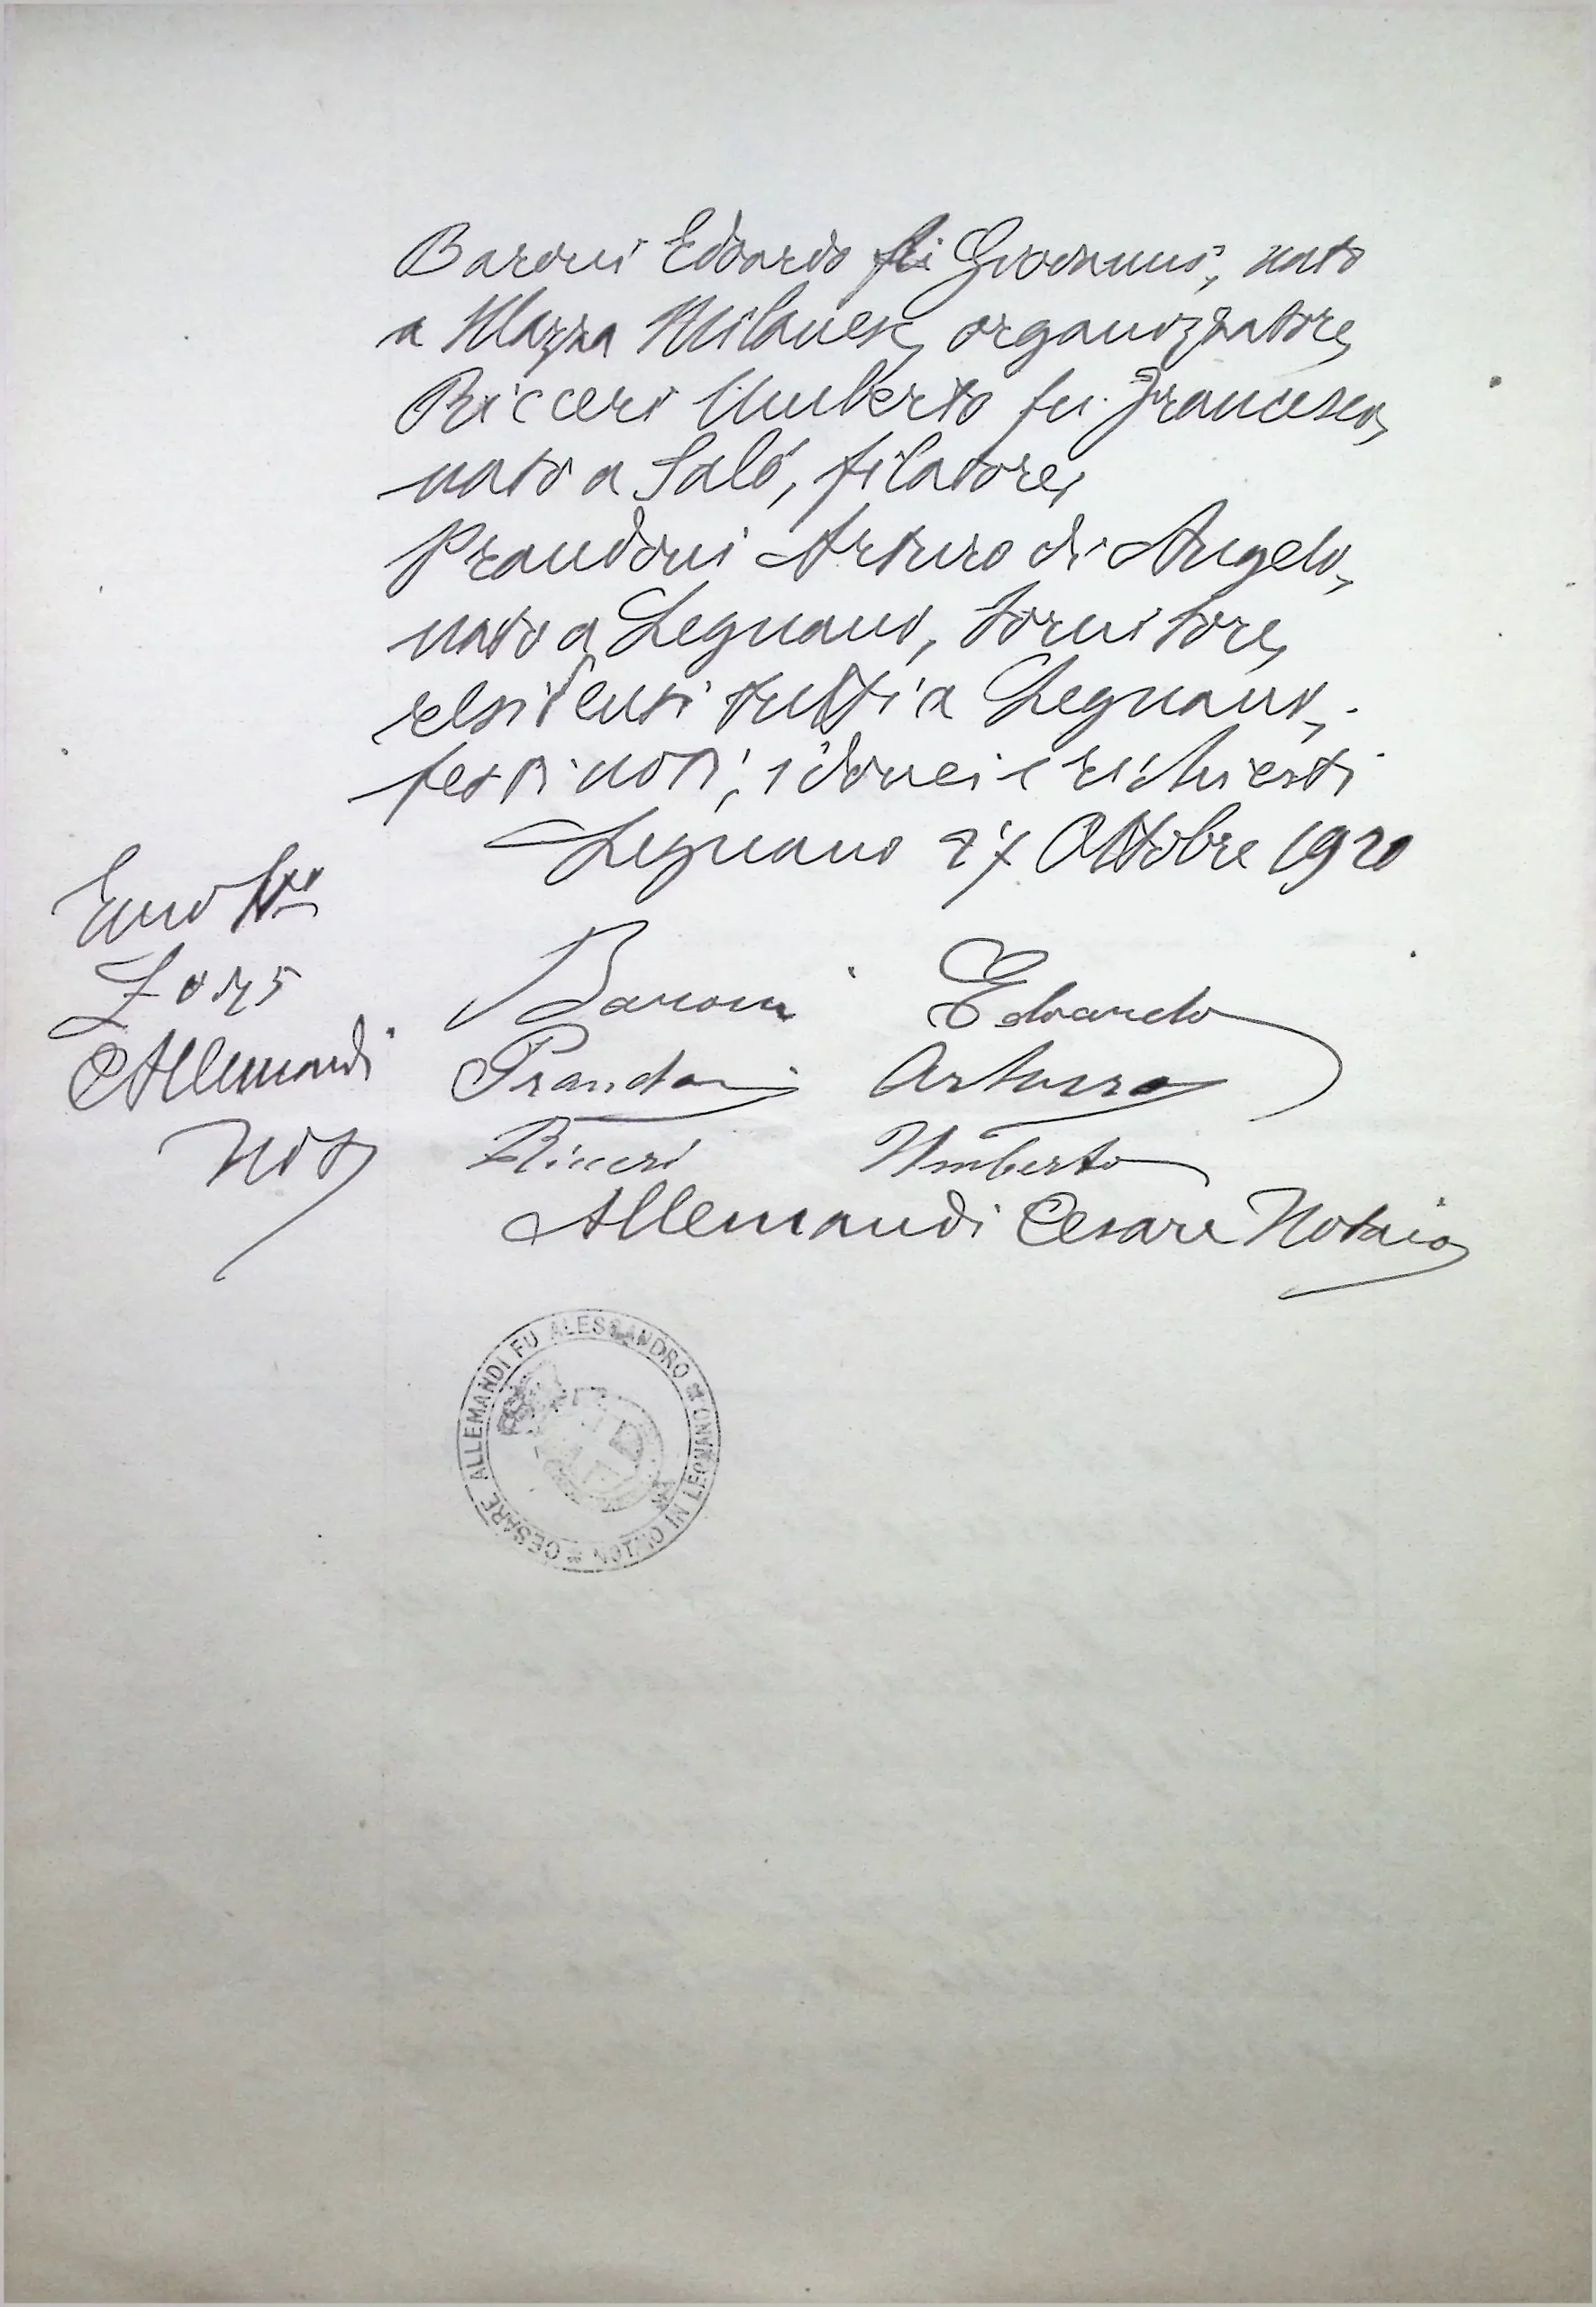 Baroni Edoardo fu Giovanni, nato
a Mazza Milanese, organizzatore,
Ricceri Umberto fu Francesco,
nato a Salò, filatore,
Prandoni Arturo di Angelo,
nato a Legnano, tornitore,
residenti tutti a Legnano,
testi noti, idonei e richiesti
Legnano 27 Ottobre 1920
Baroni Edoardo
Prandoni Arturo
Ricceri Umberto
Allemandi Cesare Notaio
CAllemandi
Not
CESARE ALLEMANDI FU ALESSANDRO * NOTAIO IN LEGNANO *